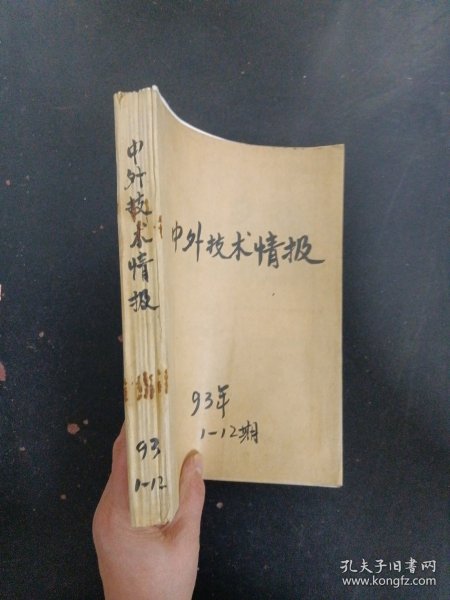 中外技术情报
93
1-12
中外技术情报
93年
1-12期
孔夫子旧书网
www.kongfz.com